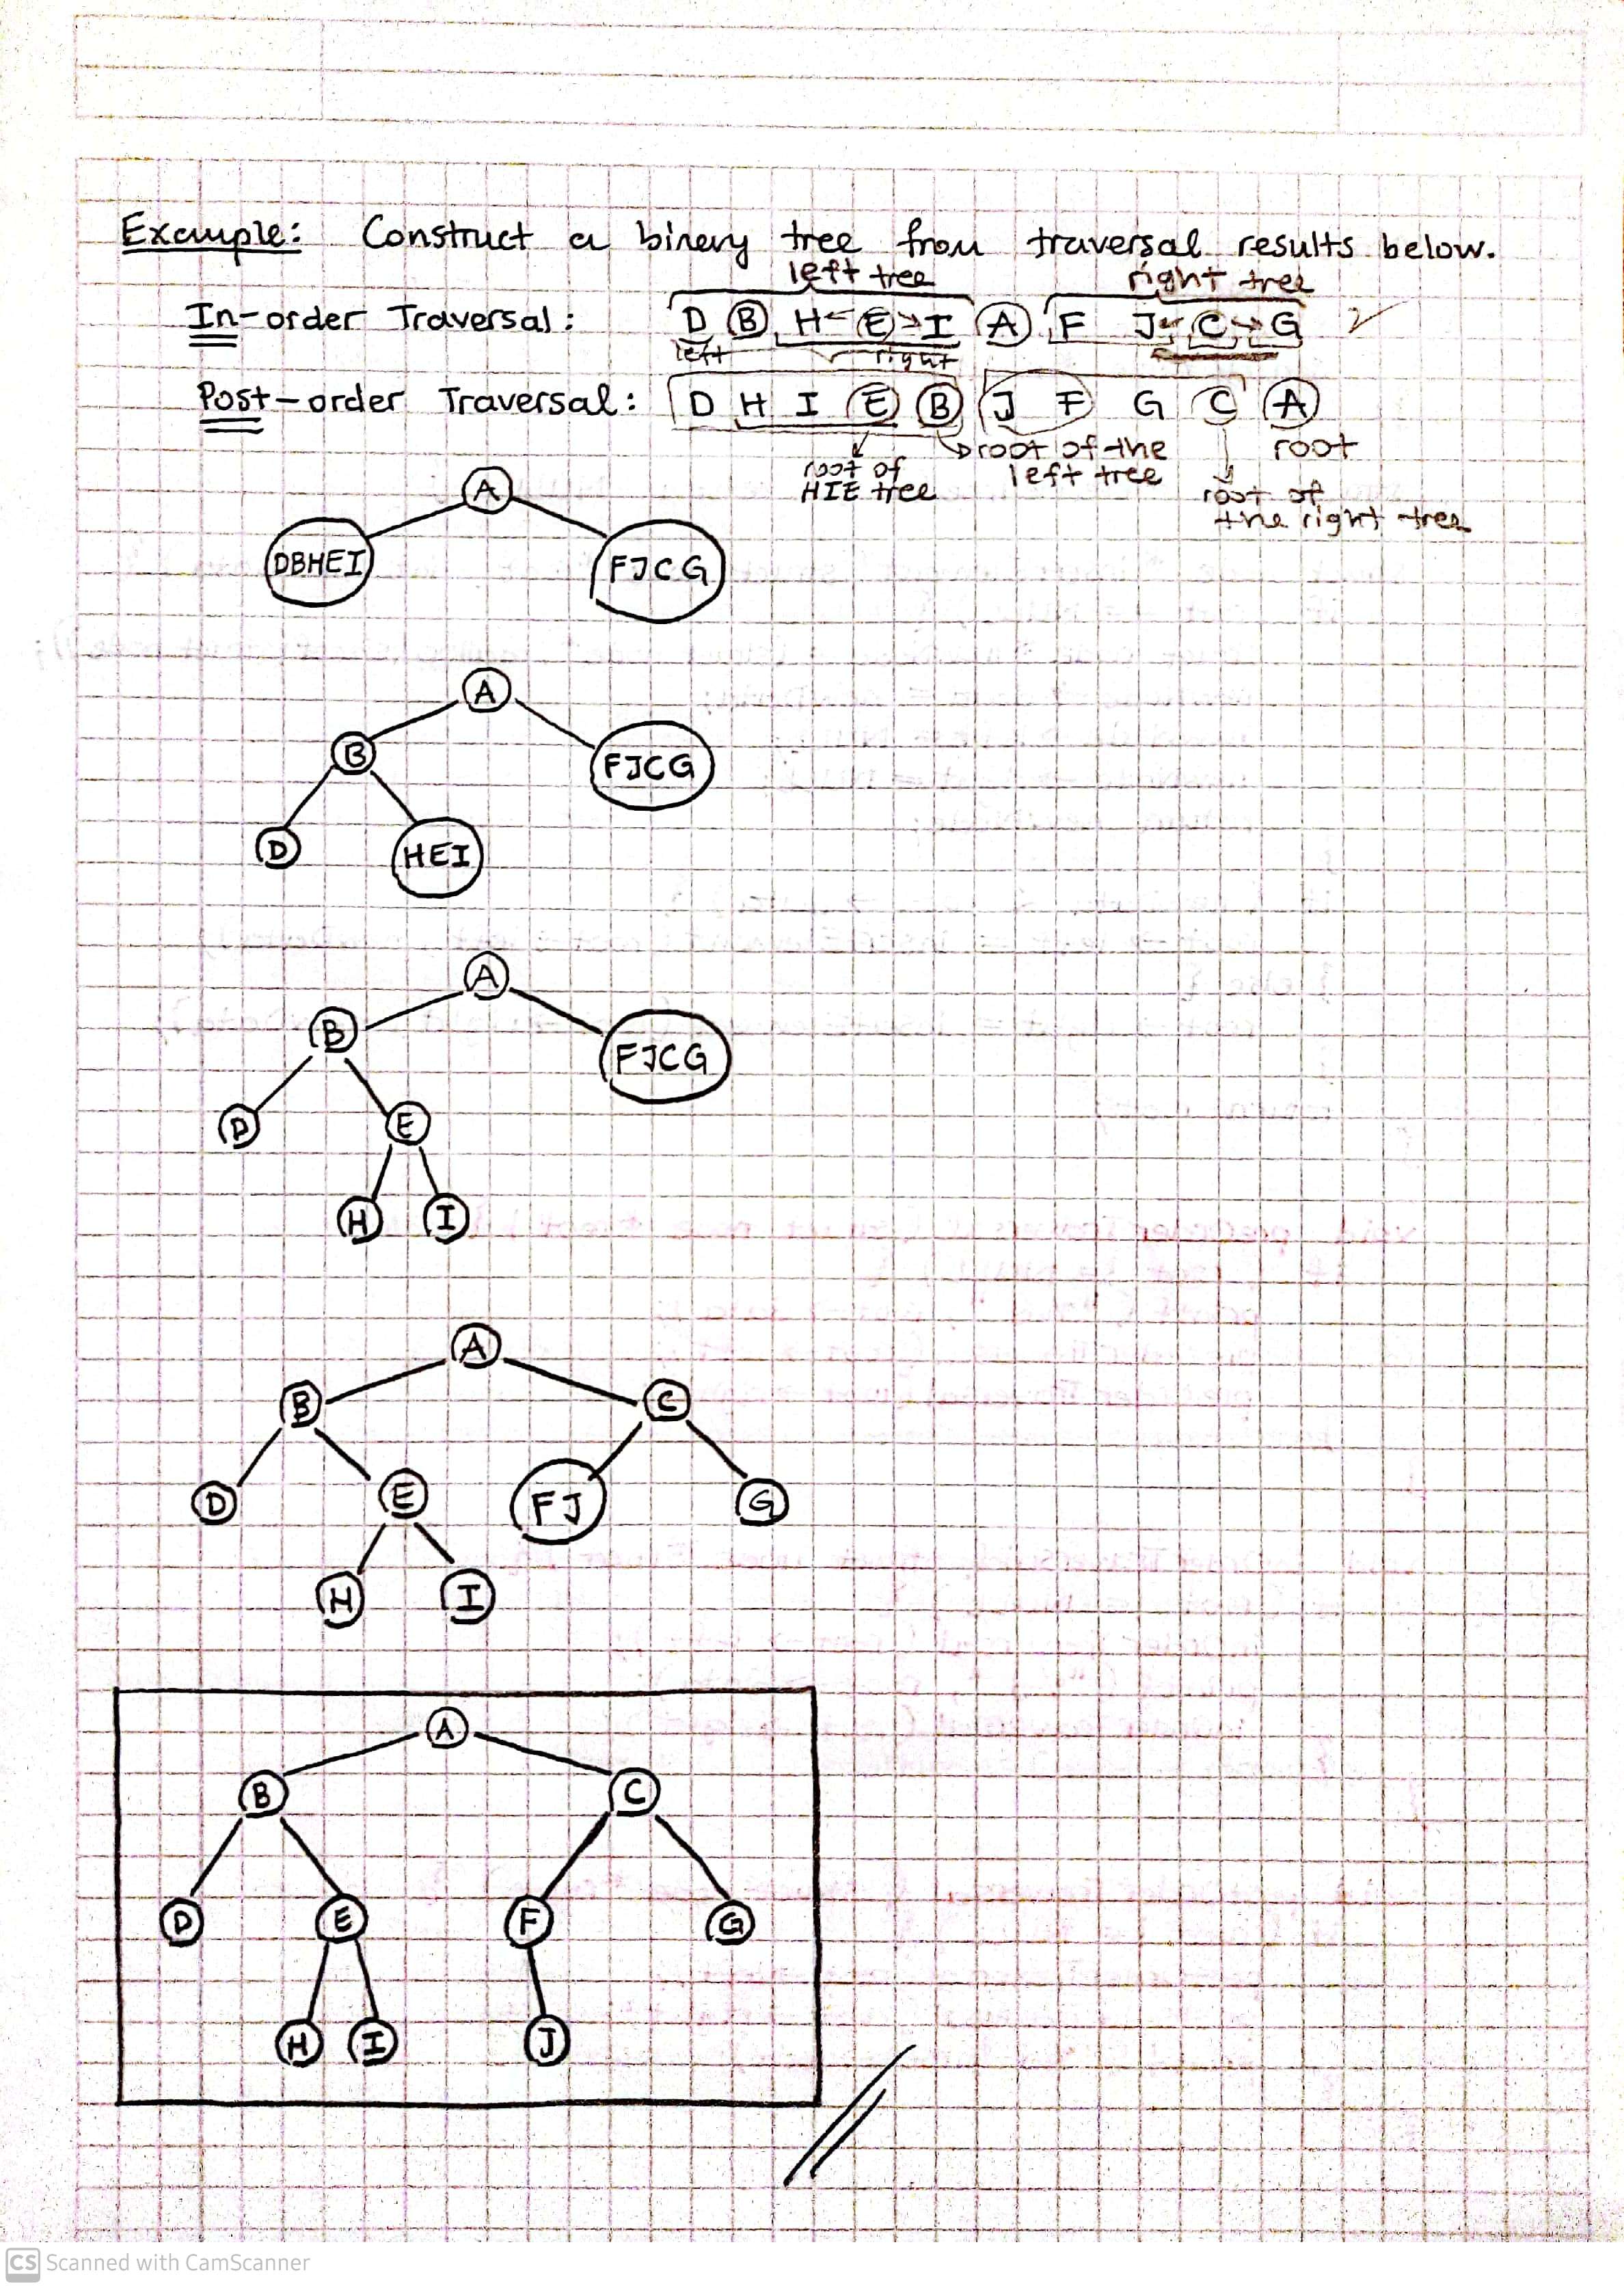 Example: Construct a binary tree from traversal results below.
left tree right tree
In-order Traversal: D B H E I A F J C G
left right
Post-order Traversal: D H I E B J F G C A
root of HIE tree
root of the left tree
root of the right tree
root
A
DBHEI FJCG
A
B FJCG
D HEI
A
B FJCG
D E
H I
A
B C
D E FJ G
H I
A
B C
D E F G
H I J
CS Scanned with CamScanner